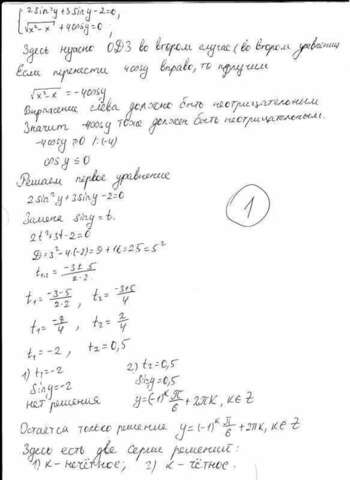 { 2sin²y+3siny-2=0,
√x²-x +4cosy=0,
Здесь нужно ОДЗ во втором случае (во втором уравнении)
Если перенести 4cosy вправо, то получим
√x²-x = -4cosy
Выражение слева должно быть неотрицательном
Значит -4cosy тоже должен быть неотрицательным.
-4cosy ≥ 0 |:(-4)
cosy ≤ 0
Решаем первое уравнение
2sin²y+3siny-2=0
Замена siny=t.
2t²+3t-2=0
D=3²-4·(-2)·2=9+16=25=5²
t₁,₂ = -3±5/2·2
t₁ = -3-5/2·2 , t₂ = -3+5/4
t₁ = -8/4 , t₂ = 2/4
t₁ = -2 , t₂ = 0,5
1) t₁=-2 2) t₂=0,5
siny=-2 siny=0,5
нет решения y=(-1)ᴷ π/6 + 2πk, k∈Z
Остается только решение y=(-1)ᴷ π/6 + 2πk, k∈Z
Здесь есть две серии решений:
1) k - нечётное; 2) k - чётное.
1